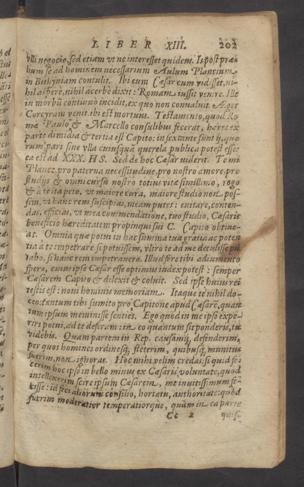 LIBER XIII. 202
ulli negocio, sed etiam ut ne interesset quidem. Is post præ
lium se ad hominem necessarium Aulum Plautium
in Bithyniam contulit. Ibi eum Cæsar cum vidisset, ni-
hil asperè, nihil acerbè dixit: Romam iussit venire. Ille
in morbum continuò incidit, ex quo non convaluit. Æger
Corcyram venit. ibi est mortuus. Testamento, quod Ro-
mæ Paulo & Marcello consulibus fecerat, heres ex
parte dimidia & tertia est Capito: in sextante sunt ij, quo-
rum pars sine ulla cuiusquam querela publica potest esse:
ea est ad XXX. HS. Sed de hoc Cæsar viderit. Te mi
Plance, pro paterna necessitudine, pro nostro amore, pro
studijs & omni cursu nostro totius vitæ simillimo, rogo
& à te ita peto, ut maiore cura, maiore studio nullam pos-
sim, ut hanc rem suscipias, meam putes: enitare, conten-
das, efficias, ut mea commendatione, tuo studio, Cæsaris
beneficio hæreditatem propinqui sui C. Capito obtine-
at. Omnia quæ potui in hac summa tua gratia ac poten-
tia à te impetrare si petivissem, ultro te ad me detulisse pu-
tabo, si hanc rem impetravero. Illud fore tibi adiumento
spero, cuius ipse Cæsar esse optimus iudex potest: semper
Cæsarem Capito & dilexit & coluit. Sed ipse huius rei
testis est: novi hominis memoriam. Itaque te nihil do-
ceo: tantum tibi sumito pro Capitone apud Cæsarem, quan-
tum ipsum meminisse senties. Ego quod in me ipso expe-
riri potui, ad te deferam: in eo quantum sit ponderis, tu
videbis. Quam partem in Rep. causamq; defenderim,
per quos homines ordinesq; steterim, quibusq; munitus
fuerim, non ignoras. Hoc mihi velim credas: si quid fe-
cerim hoc ipso in bello minus ex Cæsaris voluntate, quod
intellexerim scire ipsum Cæsarem, me invitissimum fe-
cisse: id fecisse aliorum consilio, hortatu, authoritate: quod
fuerim moderatior temperatiorque, quàm in ea parte
Cc 2 quis-